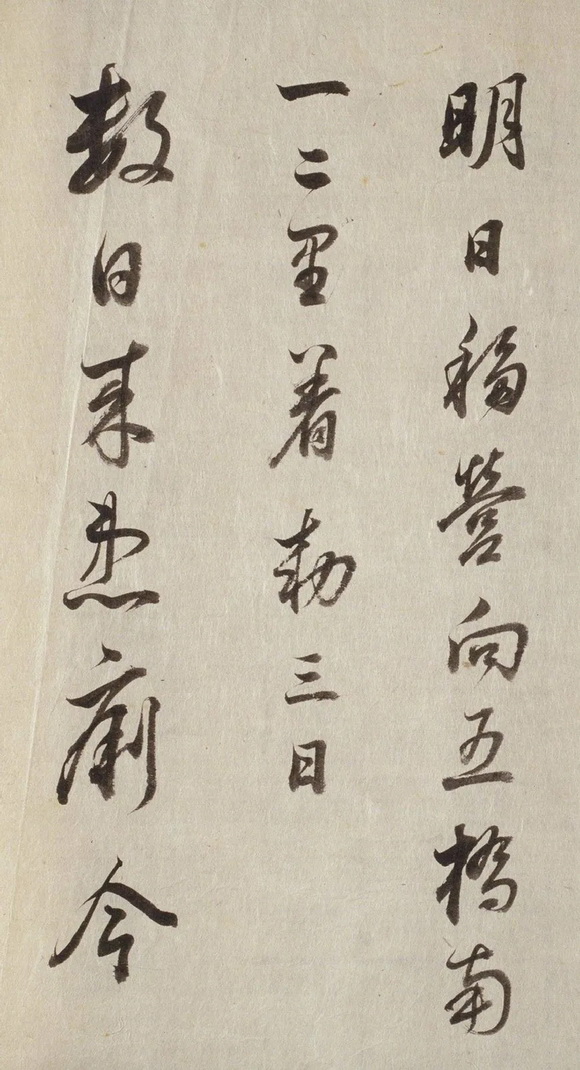 明日移營向五橋南
一二里着勅三日
數日来患痢今